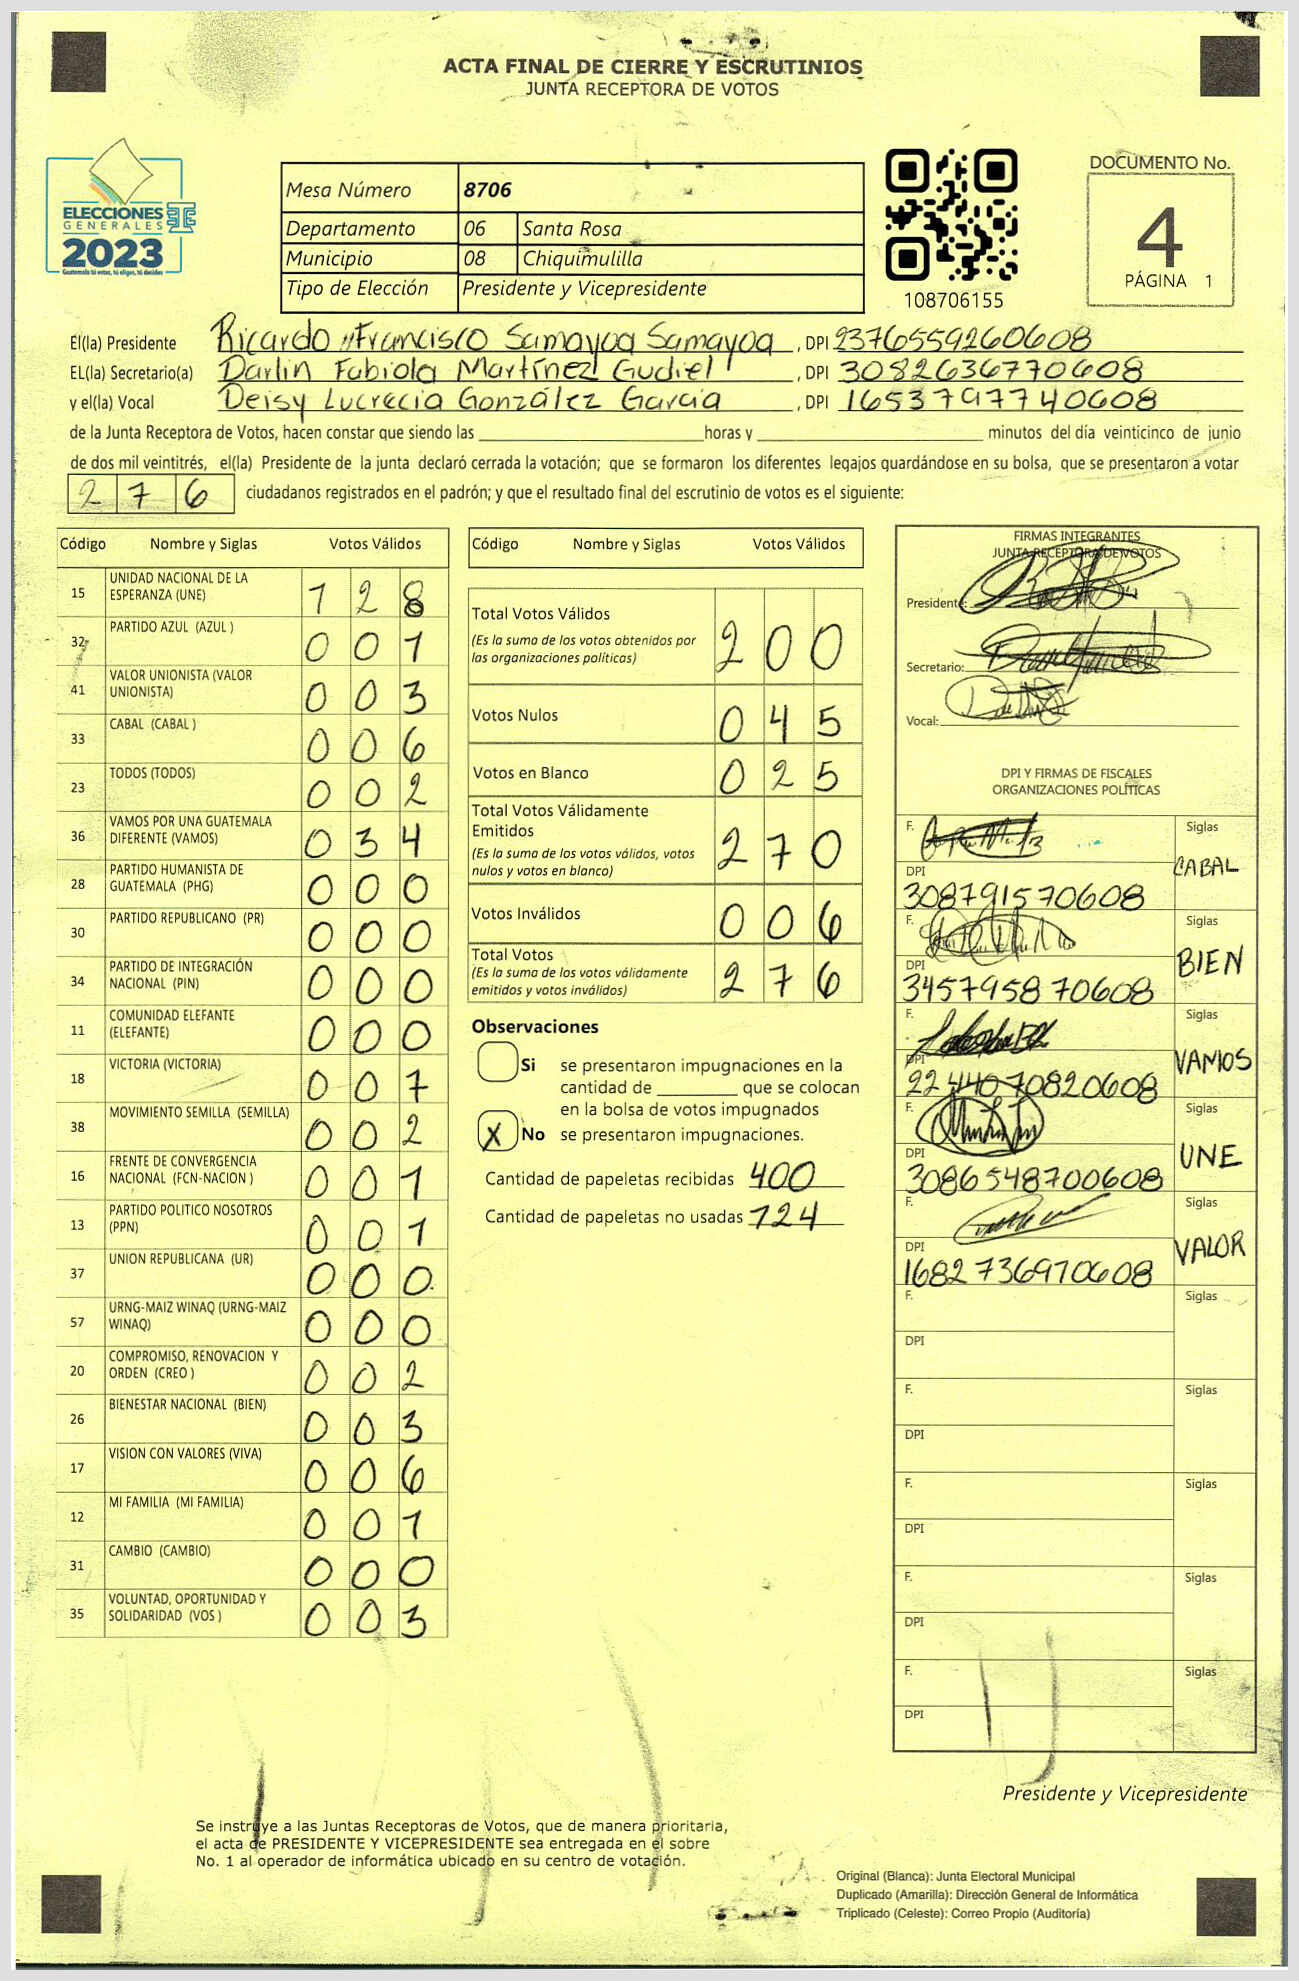 ACTA FINAL DE CIERRE Y ESCRUTINIOS
JUNTA RECEPTORA DE VOTOS
ELECCIONES
GENERALES
2023
Guatemala tú votas, tú eliges, tú decides
Mesa Número 8706
Departamento 06 Santa Rosa
Municipio 08 Chiquimulilla
Tipo de Elección Presidente y Vicepresidente
108706155
DOCUMENTO No.
4
PÁGINA 1
El(la) Presidente Ricardo Francisco Samayoa Samayoa, DPI 2376559260608
EL(la) Secretario(a) Darlin Fabiola Martínez Gudiel, DPI 3082636770608
y el(la) Vocal Deisy Lucrecia González Garcia, DPI 1653797740608
de la Junta Receptora de Votos, hacen constar que siendo las ____ horas y ____ minutos del día veinticinco de junio
de dos mil veintitrés, el(la) Presidente de la junta declaró cerrada la votación; que se formaron los diferentes legajos guardándose en su bolsa, que se presentaron a votar
276 ciudadanos registrados en el padrón; y que el resultado final del escrutinio de votos es el siguiente:
Código Nombre y Siglas Votos Válidos
15 UNIDAD NACIONAL DE LA ESPERANZA (UNE) 128
32 PARTIDO AZUL (AZUL ) 001
41 VALOR UNIONISTA (VALOR UNIONISTA) 003
33 CABAL (CABAL ) 006
23 TODOS (TODOS) 002
36 VAMOS POR UNA GUATEMALA DIFERENTE (VAMOS) 034
28 PARTIDO HUMANISTA DE GUATEMALA (PHG) 000
30 PARTIDO REPUBLICANO (PR) 000
34 PARTIDO DE INTEGRACIÓN NACIONAL (PIN) 000
11 COMUNIDAD ELEFANTE (ELEFANTE) 000
18 VICTORIA (VICTORIA) 007
38 MOVIMIENTO SEMILLA (SEMILLA) 002
16 FRENTE DE CONVERGENCIA NACIONAL (FCN-NACION ) 001
13 PARTIDO POLITICO NOSOTROS (PPN) 001
37 UNION REPUBLICANA (UR) 000
57 URNG-MAIZ WINAQ (URNG-MAIZ WINAQ) 000
20 COMPROMISO, RENOVACION Y ORDEN (CREO ) 002
26 BIENESTAR NACIONAL (BIEN) 003
17 VISION CON VALORES (VIVA) 006
12 MI FAMILIA (MI FAMILIA) 001
31 CAMBIO (CAMBIO) 000
35 VOLUNTAD, OPORTUNIDAD Y SOLIDARIDAD (VOS ) 003
Código Nombre y Siglas Votos Válidos
Total Votos Válidos 200
(Es la suma de los votos obtenidos por
las organizaciones políticas)
Votos Nulos 045
Votos en Blanco 025
Total Votos Válidamente
Emitidos 270
(Es la suma de los votos válidos, votos
nulos y votos en blanco)
Votos Inválidos 006
Total Votos 276
(Es la suma de los votos válidamente
emitidos y votos inválidos)
Observaciones
Si se presentaron impugnaciones en la
cantidad de ____ que se colocan
en la bolsa de votos impugnados
X No se presentaron impugnaciones.
Cantidad de papeletas recibidas 400
Cantidad de papeletas no usadas 124
FIRMAS INTEGRANTES
JUNTA RECEPTORA DE VOTOS
Presidente:
Secretario:
Vocal:
DPI Y FIRMAS DE FISCALES
ORGANIZACIONES POLÍTICAS
F. Siglas
CABAL
DPI
308791570608
F. Siglas
BIEN
DPI
345795870608
F. Siglas
VAMOS
DPI
2244070820608
F. Siglas
UNE
DPI
3086548700608
F. Siglas
VALOR
DPI
1682736970608
F. Siglas
DPI
F. Siglas
DPI
F. Siglas
DPI
F. Siglas
DPI
F. Siglas
DPI
Presidente y Vicepresidente
Se instruye a las Juntas Receptoras de Votos, que de manera prioritaria,
el acta de PRESIDENTE Y VICEPRESIDENTE sea entregada en el sobre
No. 1 al operador de informática ubicado en su centro de votación.
Original (Blanca): Junta Electoral Municipal
Duplicado (Amarilla): Dirección General de Informática
Triplicado (Celeste): Correo Propio (Auditoría)